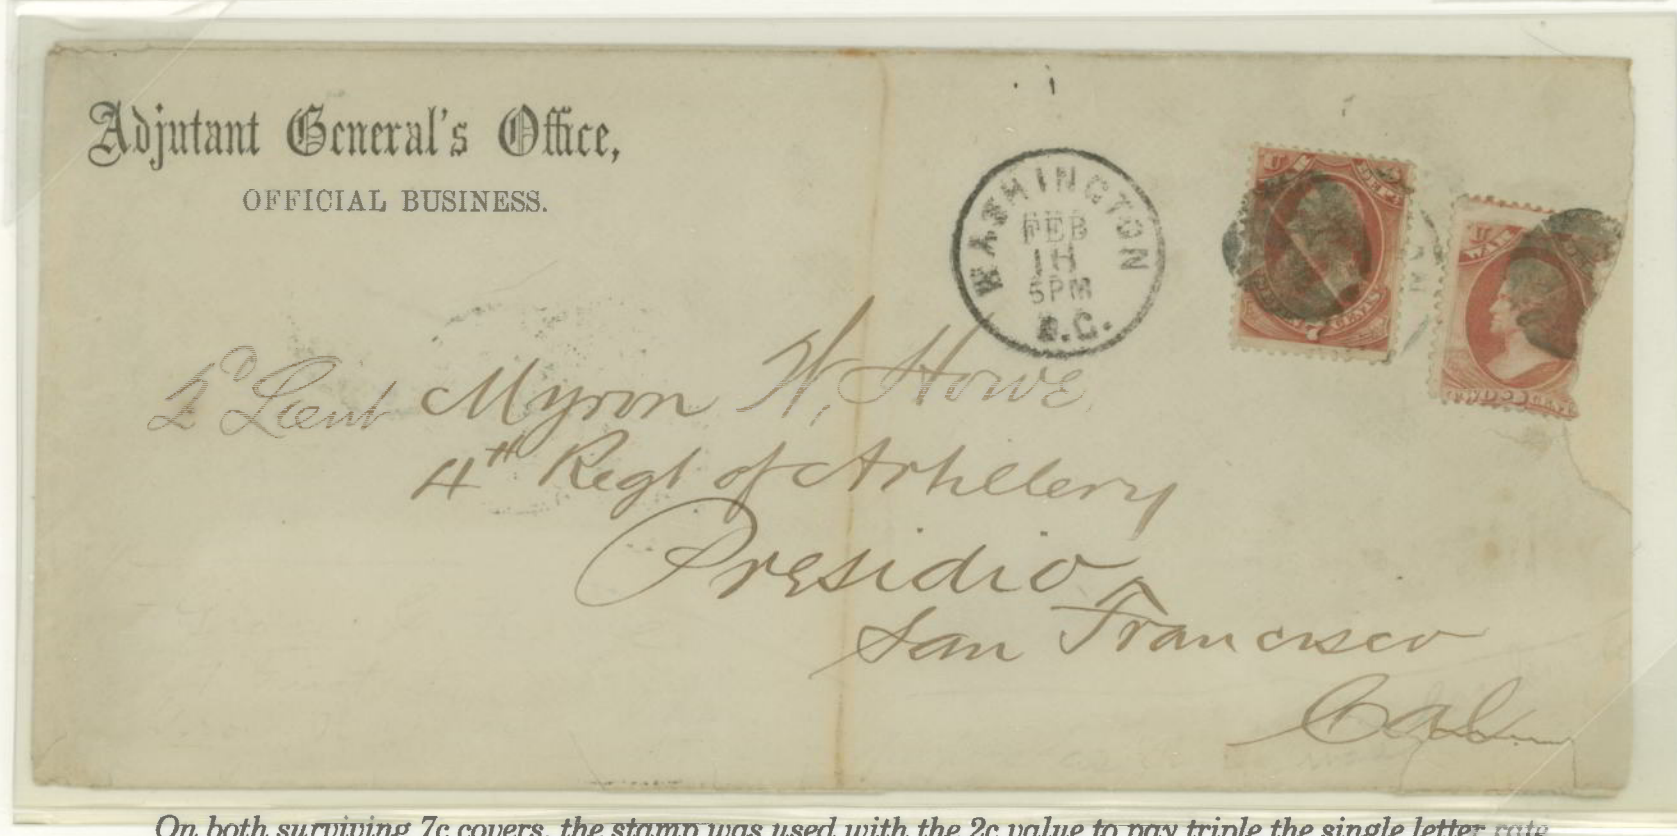 Adjutant General's Office,
OFFICIAL BUSINESS.
WASHINGTON
FEB
18
5PM
D.C.
U S
7 CENTS
U S
TWO CENTS
2D Lieut Myron W. Howe,
4th Regt of Artillery
Presidio
San Francisco
Cal
On both surviving 7c covers, the stamp was used with the 2c value to pay triple the single letter rate